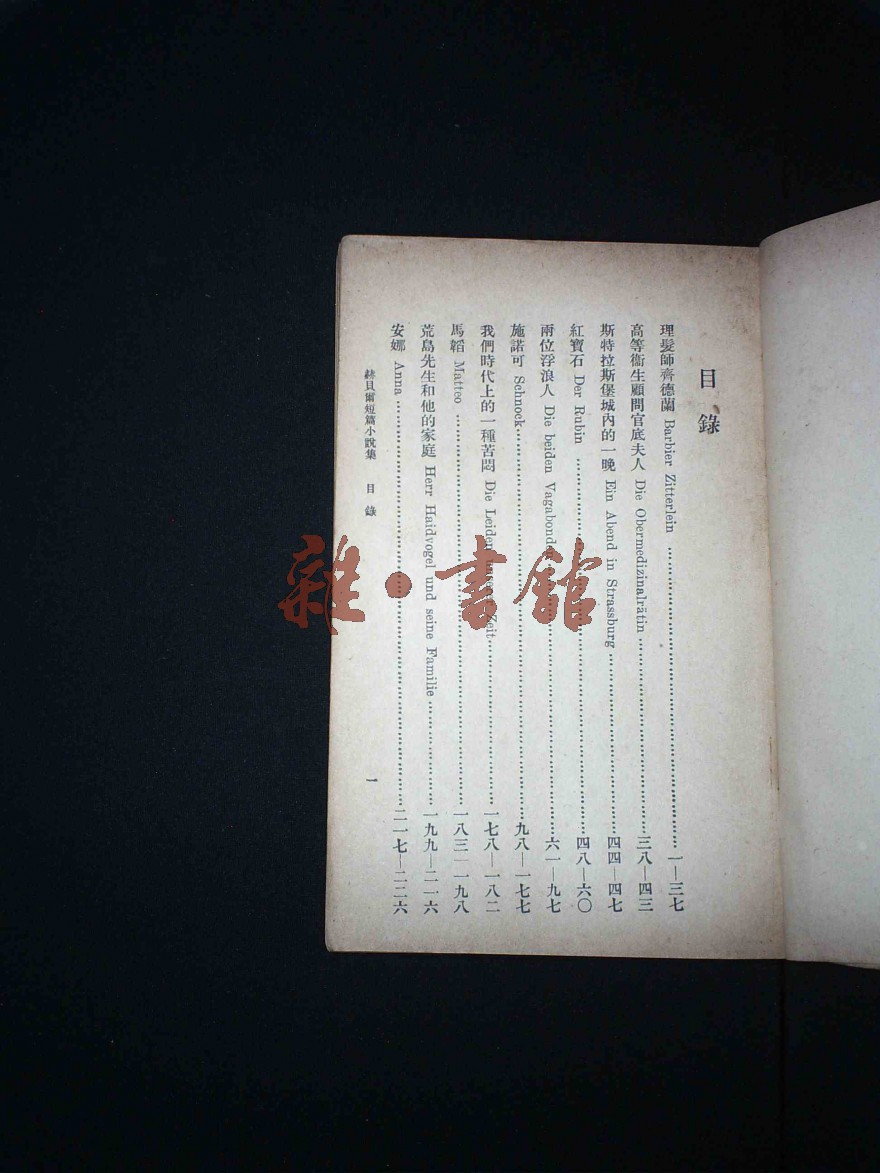 目錄
理髮師齊德蘭 Barbier Zitterlein 一—三七
高等衞生顧問官底夫人 Die Obermedizinalrätin 三八—四三
斯特拉斯堡城內的一晚 Ein Abend in Strassburg 四四—四七
紅寶石 Der Rubin 四八—六〇
兩位浮浪人 Die beiden Vagabonden 六一—九七
施諾可 Schnock 九八—一七七
我們時代上的一種苦悶 Die Leiden unserer Zeit 一七八—一八二
馬韜 Matteo 一八三—一九八
荒島先生和他的家庭 Herr Haidvogel und seine Familie 一九九—二一六
安娜 Anna 二一七—二二六
赫貝爾短篇小說集 目錄
一
雜·書館